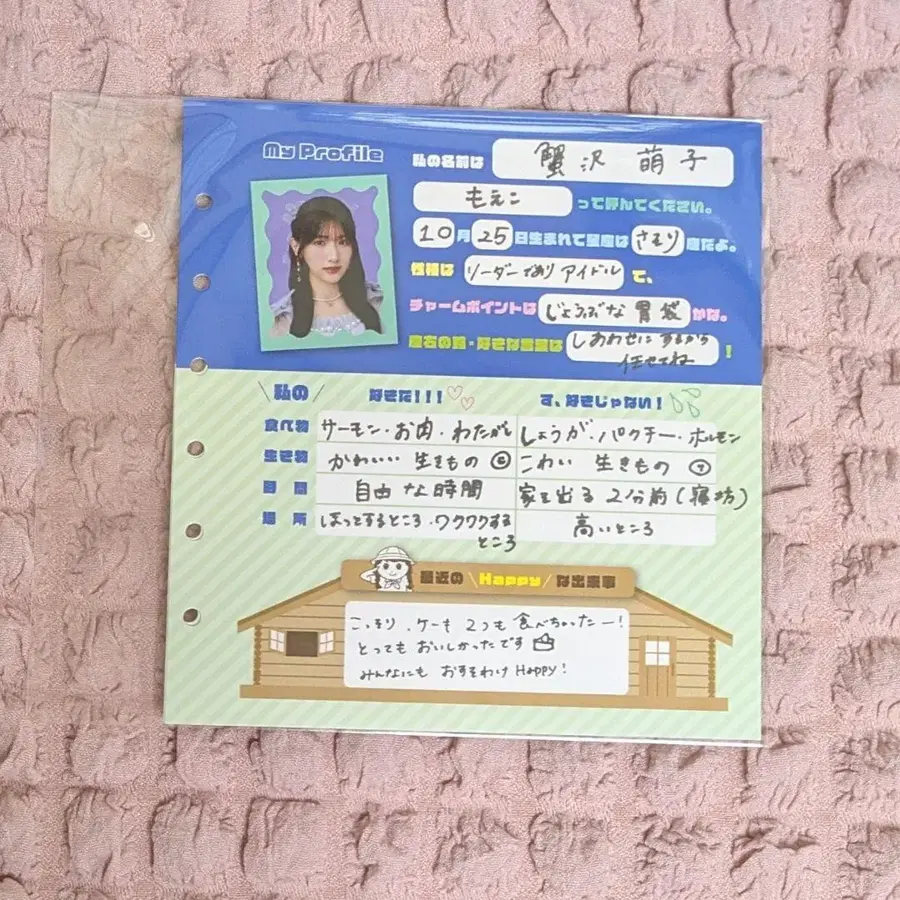 My Profile
私の名前は 蟹沢 萌子
もえこ って呼んでください。
10月25日生まれで星座は さそり 座だよ。
性格は リーダーであり アイドル で、
チャームポイントは じょうぶな 胃袋 かな。
座右の銘・好きな言葉は しあわせに するから 任せてね !
\私の/ 好きだ!!! す、好きじゃない!
食べ物 サーモン・お肉・わたがし しょうが・パクチー・ホルモン
生き物 かわいい 生きもの こわい 生きもの
時間 自由な時間 家を出る 2分前(寝坊)
場所 ほっとするところ・ワクワクするところ 高いところ
最近の \Happy/ な出来事
こっそり、ケーキ 2つも 食べちゃったー!
とっても おいしかったです
みんなにも おすそわけ Happy!